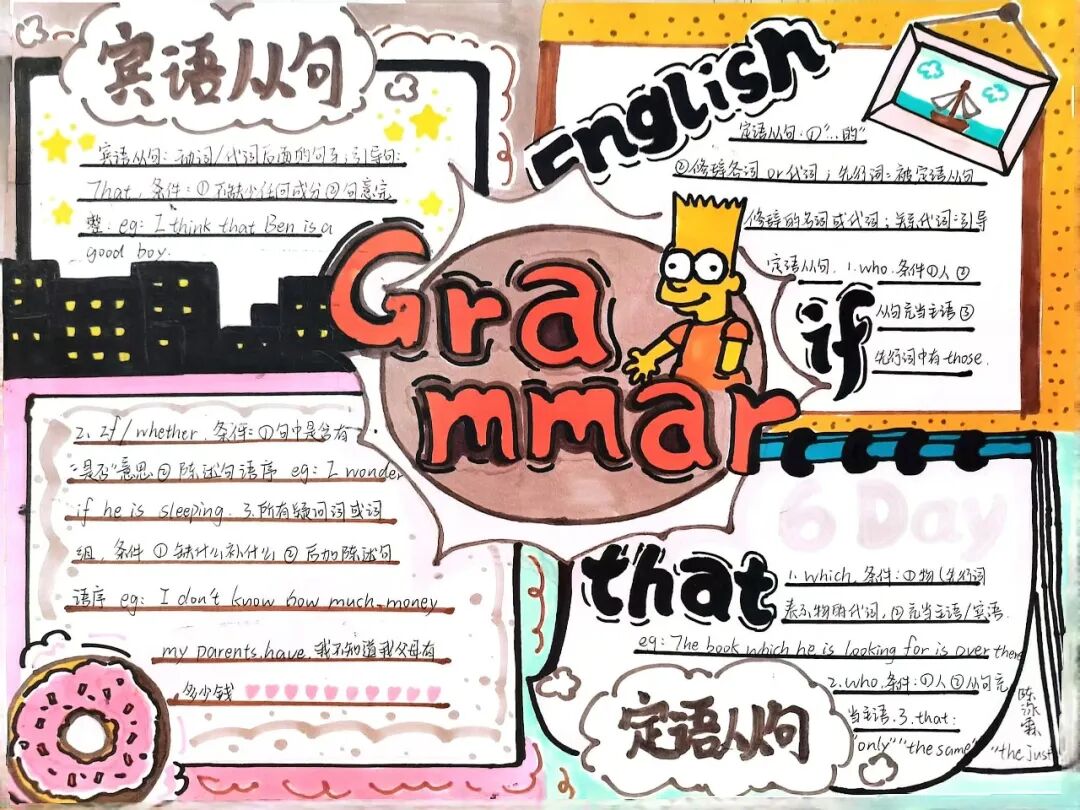 宾语从句
宾语从句：动词/代词后项的句子；引导句：
That. 条件：①不缺少任何成分②句意完
整. eg: I think that Ben is a
good boy.
English
定语从句：①"…的"
②修辞名词or代词；先行词：被定语从句
修辞的名词或代词；关系代词：引导
定语从句. 1.who.条件①人②
从句充当主语③
先行词中有those.
if
Gra
mmar
2、If/whether.条件：①句中是含有
"是否"意思②陈述句语序 eg: I wonder
if he is sleeping. 3.所有疑问词或词
组. 条件 ①缺什么补什么 ② 后加陈述句
语序 eg: I don't know how much money
my parents have 我不知道我父母有
多少钱
6 Day
that
1. which 条件：①物(先行词
表示物的代词. ②充当主语/宾语.
eg: The book which he is looking for is over there
2.who.条件：①人②从句充
当主语.3.that:
only" "the same" "the just
定语从句